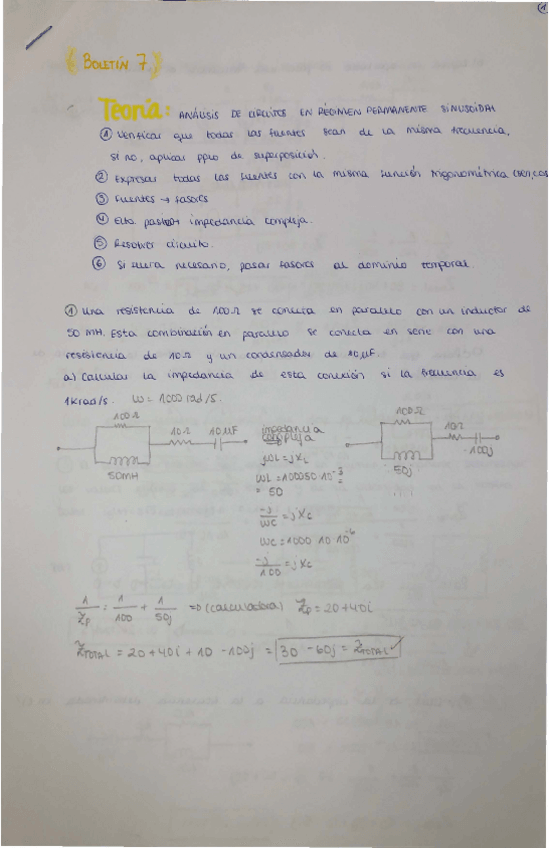 1
BOLETÍN 7
Teoría: ANÁLISIS DE CIRCUITOS EN RÉGIMEN PERMANENTE SINUSOIDAL
① Verificar que todas las fuentes sean de la misma frecuencia,
si no, aplicar ppio de superposición.
② Expresar todas las fuentes con la misma función trigonométrica (sen, cos
③ Fuentes → fasores
④ Elto. pasivo → impedancia compleja.
⑤ Resolver circuito.
⑥ Si fuera necesario, pasar fasores al dominio temporal.
① Una resistencia de 100Ω se conecta en paralelo con un inductor de
50 MH. Esta combinación en paralelo se conecta en serie con una
resistencia de 10Ω y un condensador de 10μF.
a) Calcular la impedancia de esta conexión si la frecuencia es
1Krad/s. W = 1000 rad/s.
100Ω
10Ω 10μF
50MH
impedancia
compleja
jωL = jXL
WL = 1000·50·10⁻³
= 50
-j/WC = jXc
WC = 1000·10·10⁻⁶
-j/100 = jXc
100Ω
10Ω
-100j
50j
1/Zp = 1/100 + 1/50j => (calculadora) Zp = 20+40i
ZTOTAL = 20+40i + 10 - 100j = 30 - 60j = ZTOTAL